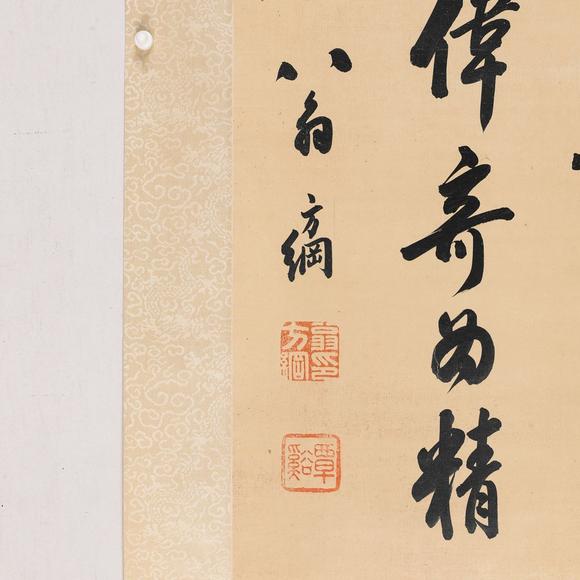 偉奇為精
翁方綱
翁印方綱
覃谿